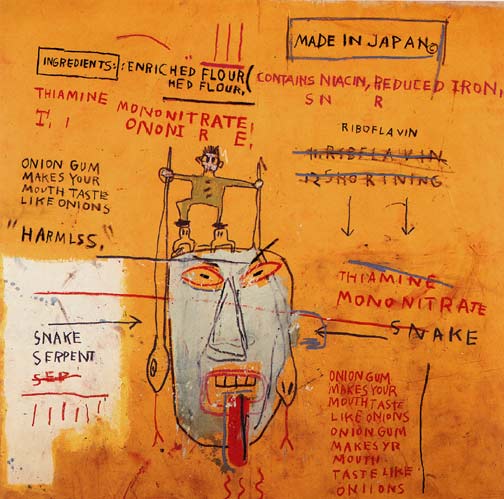 MADE IN JAPAN©
INGREDIENTS: : ENRICHED FLOUR(
HED FLOUR,
CONTAINS NIACIN, REDUCED IRON,
SN R
THIAMINE MONONITRATE!
T. I ONONI R E!
RIBOFLAVIN
11. RIBFLAVIN
12 SHORTNING
ONION GUM
MAKES YOUR
MOUTH TASTE
LIKE ONIONS
"HARMLSS."
THIAMINE
MONONITRATE
SNAKE
SNAKE
SERPENT
SEP
ONION GUM
MAKES YOUR
MOUTH TASTE
LIKE ONIONS
ONION GUM
MAKES YR
MOUTH
TASTE LIKE
ONIIONS